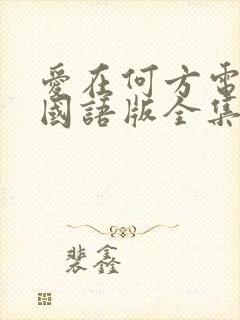 愛在何方電
國語版全集
裴鑫